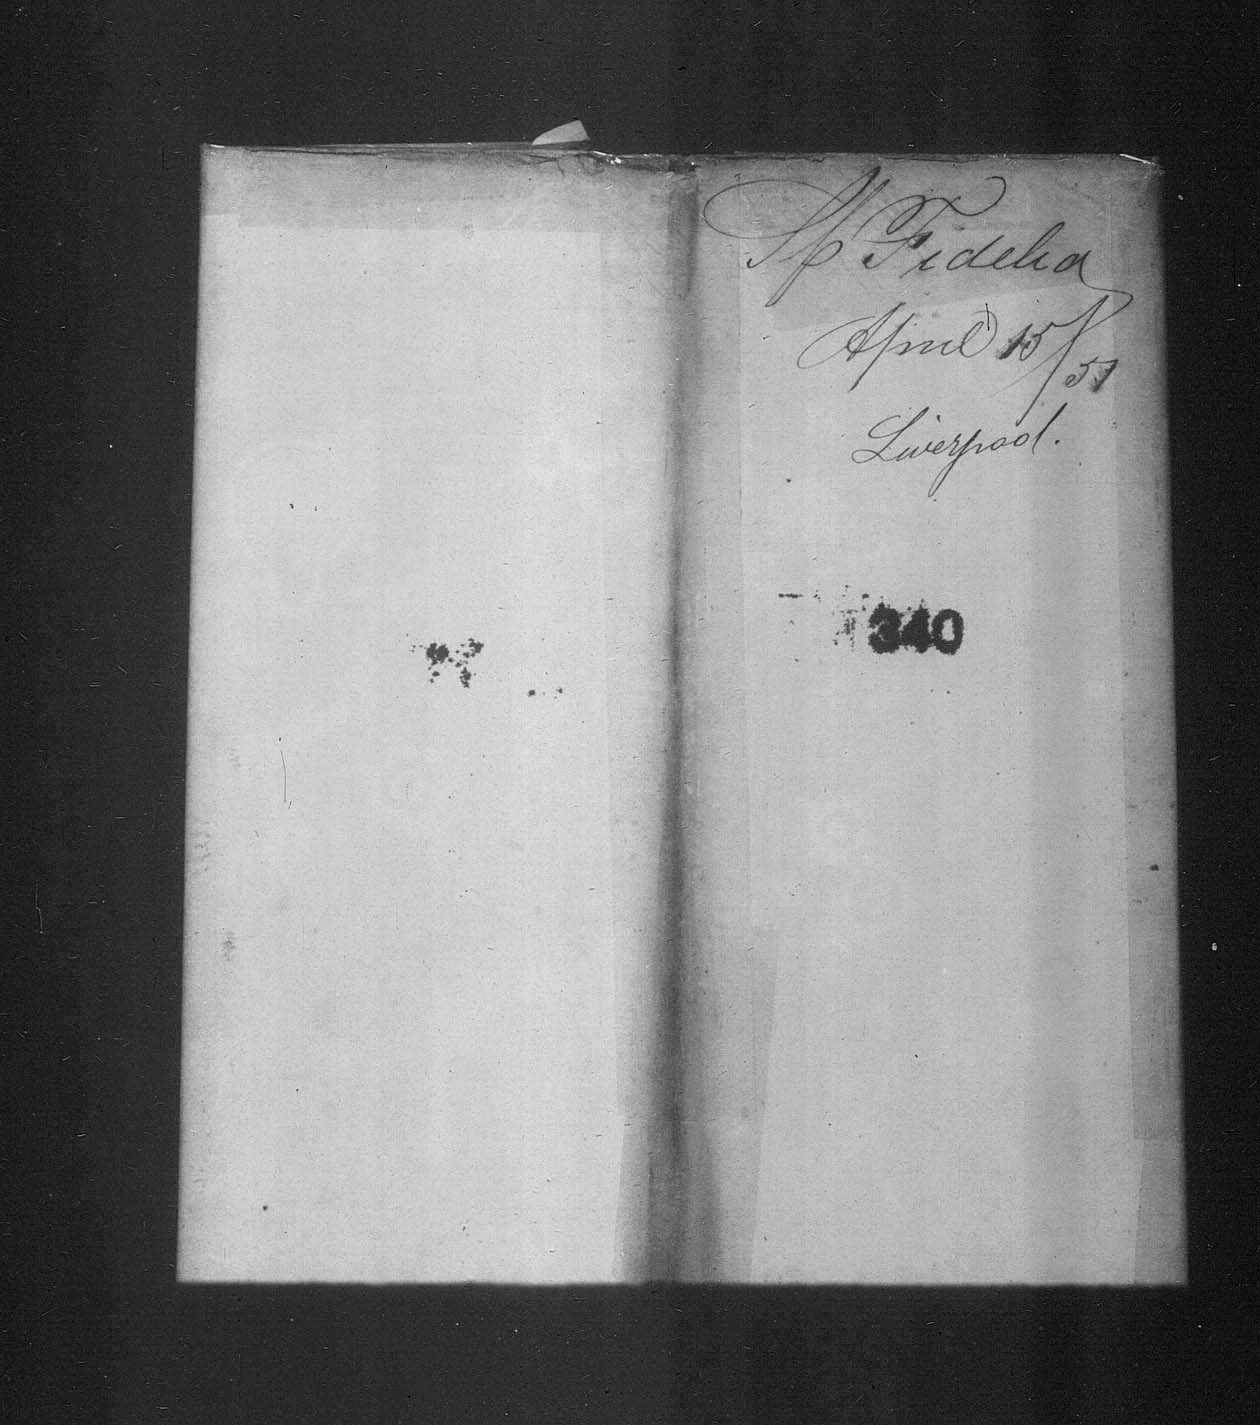 Sp Fidelia
April 15/51
Liverpool.
340